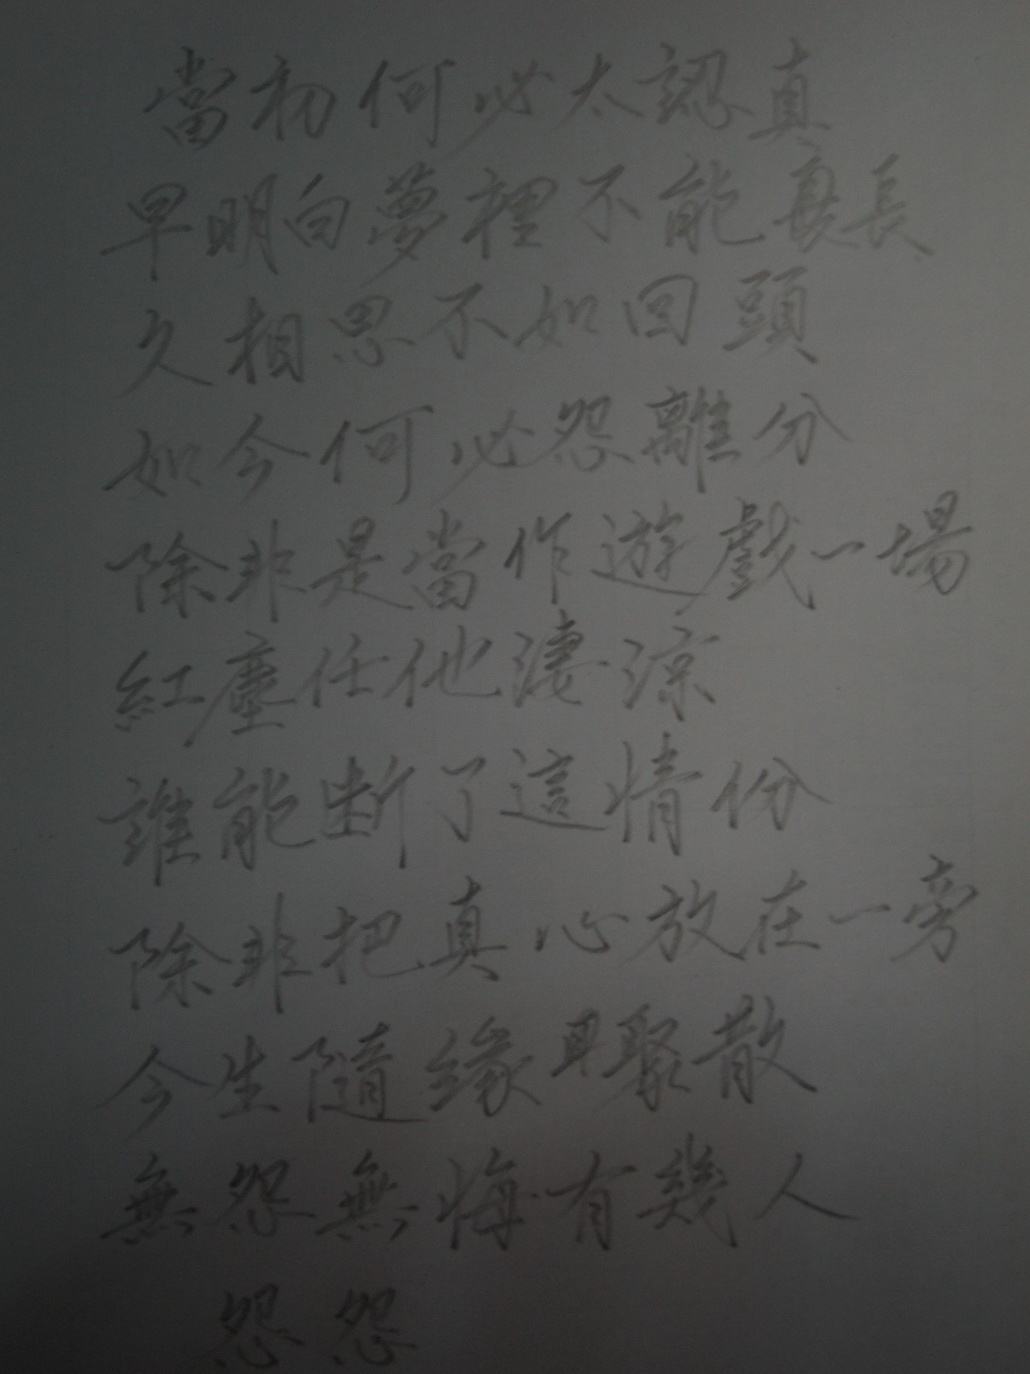 當初何必太認真
早明白夢裡不能長
久相思不如回頭
如今何必怨離分
除非是當作遊戲一場
紅塵任他淒涼
誰能斷了這情份
除非把真心放在一旁
今生隨緣聚散
無怨無悔有幾人
怨怨